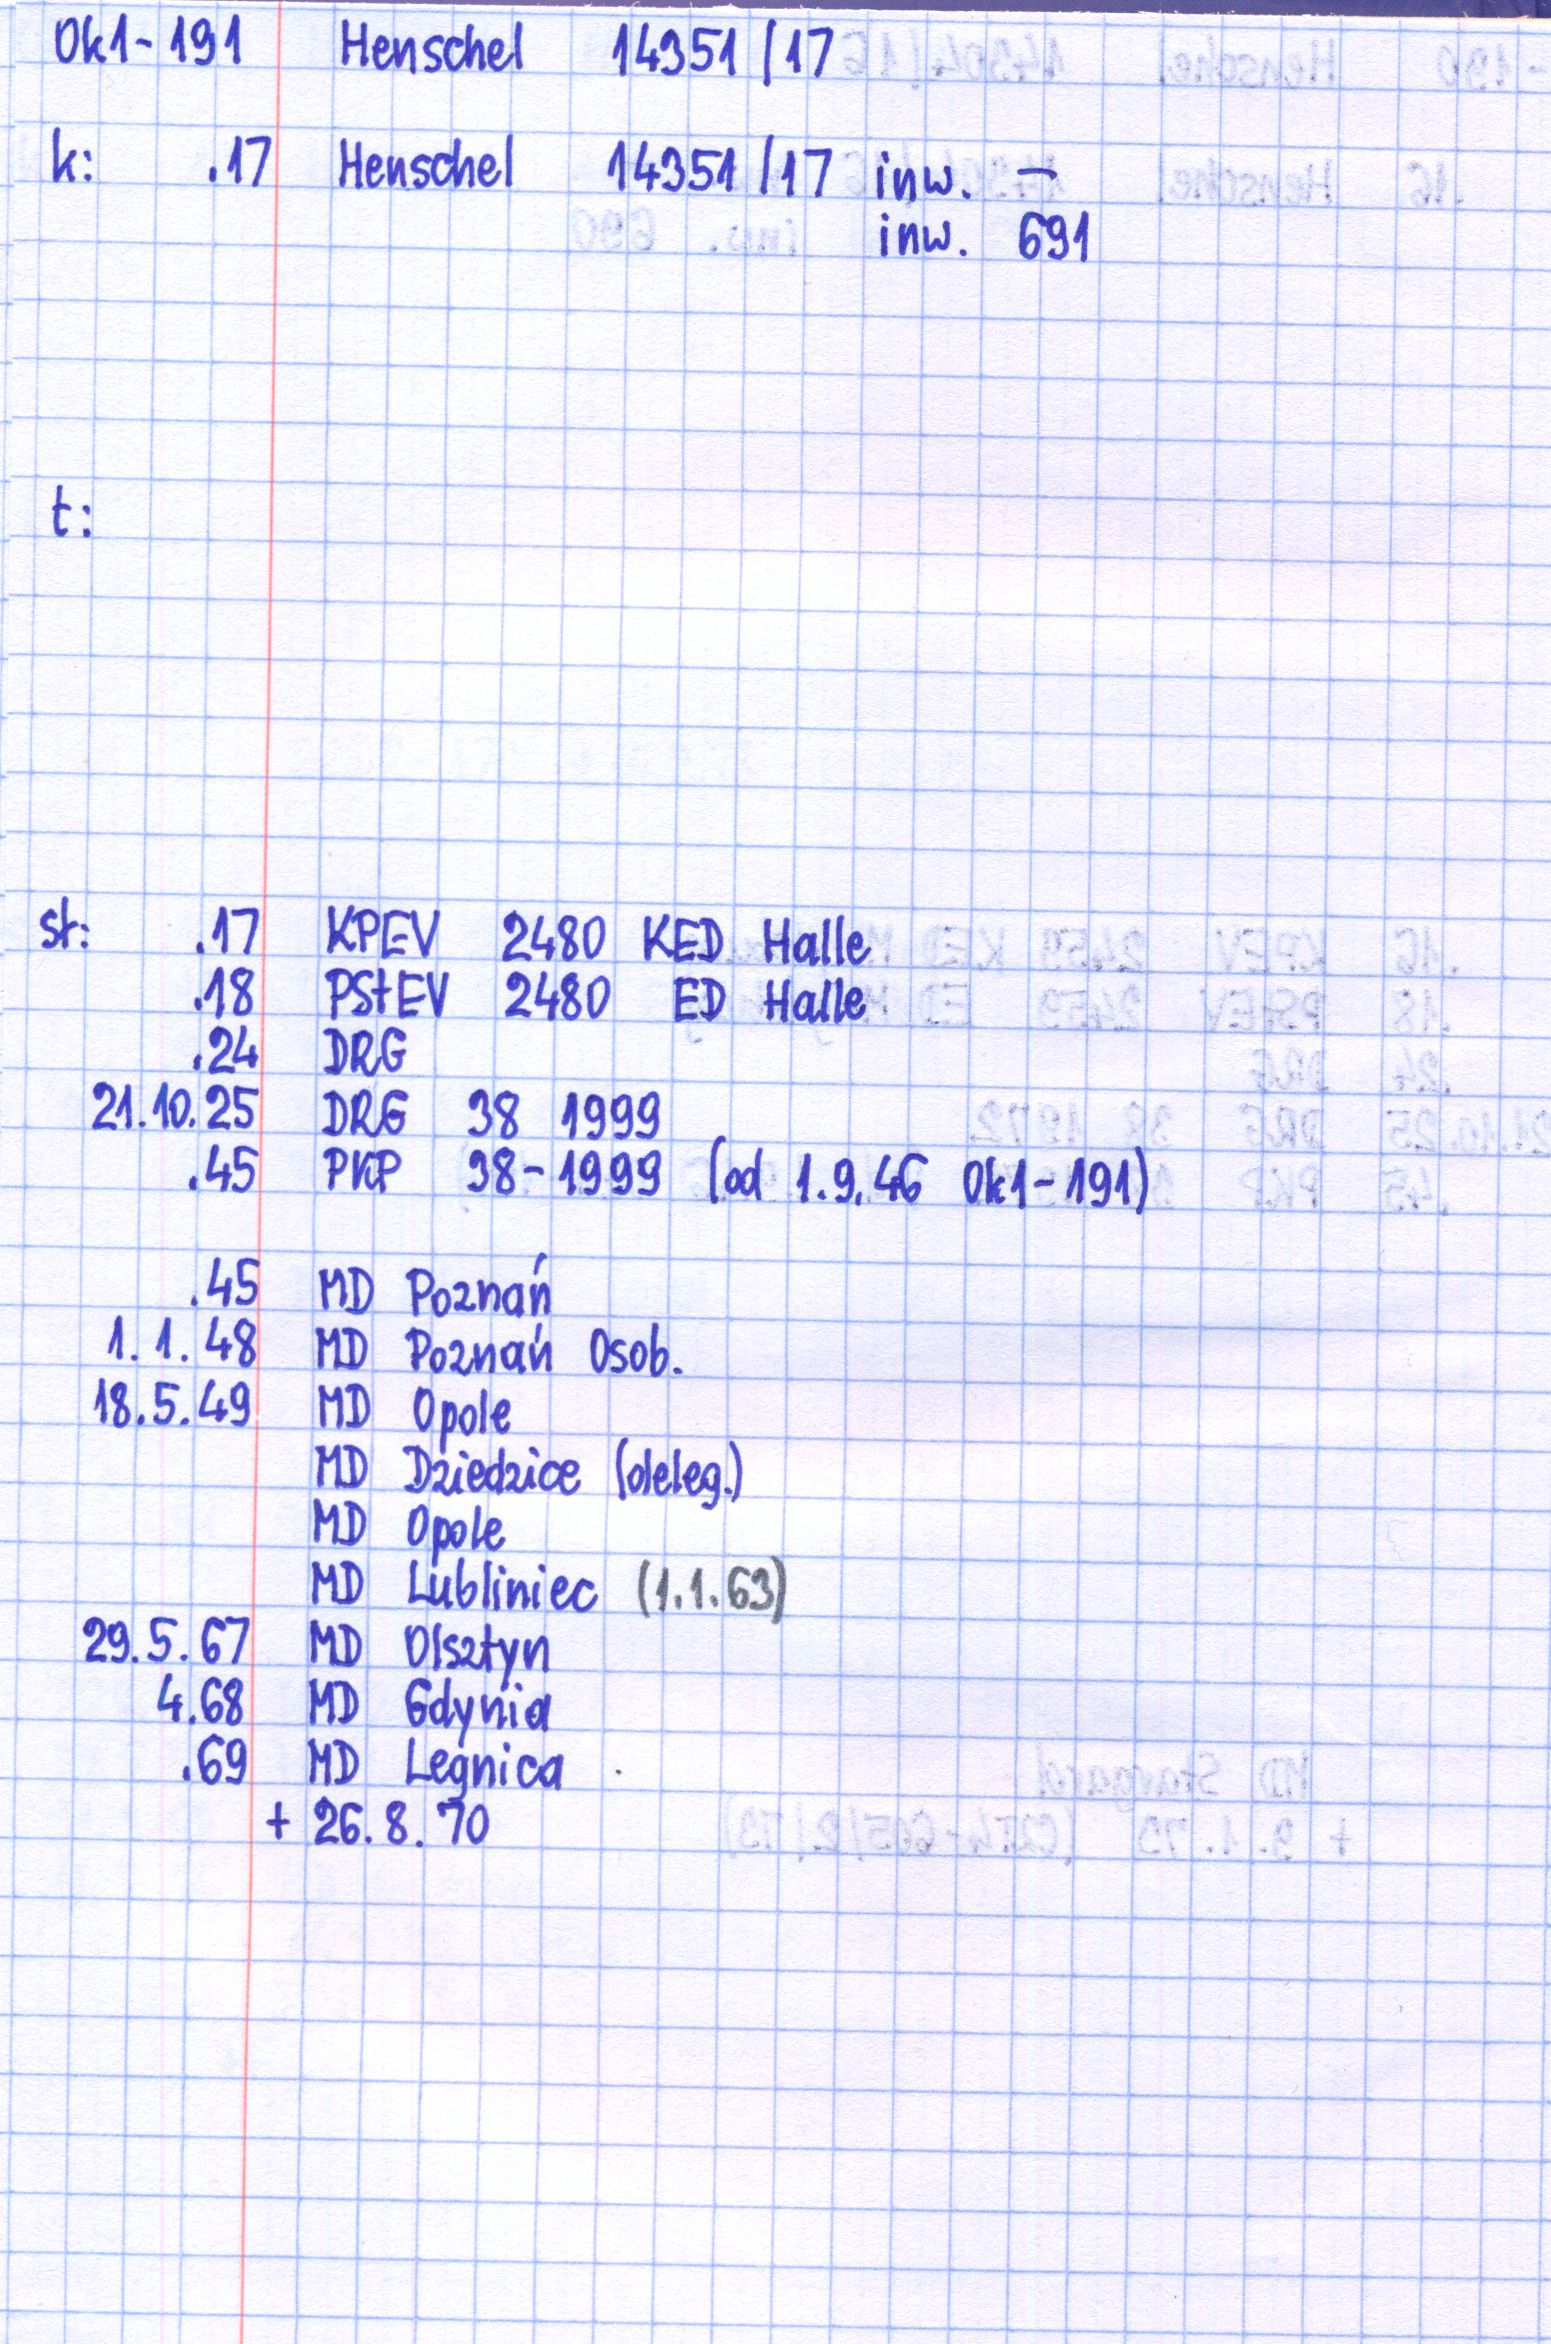 Ok1-191 Henschel 14351/17
k: .17 Henschel 14351/17 inw. —
inw. 691
t:
st: .17 KPEV 2480 KED Halle
.18 PStEV 2480 ED Halle
.24 DRG
21.10.25 DRG 38 1999
.45 PKP 38-1999 (od 1.9.46 Ok1-191)
.45 MD Poznań
1.1.48 MD Poznań Osob.
18.5.49 MD Opole
MD Dziedzice (deleg.)
MD Opole
MD Lubliniec (1.1.63)
29.5.67 MD Olsztyn
4.68 MD Gdynia
.69 MD Legnica
+ 26.8.70